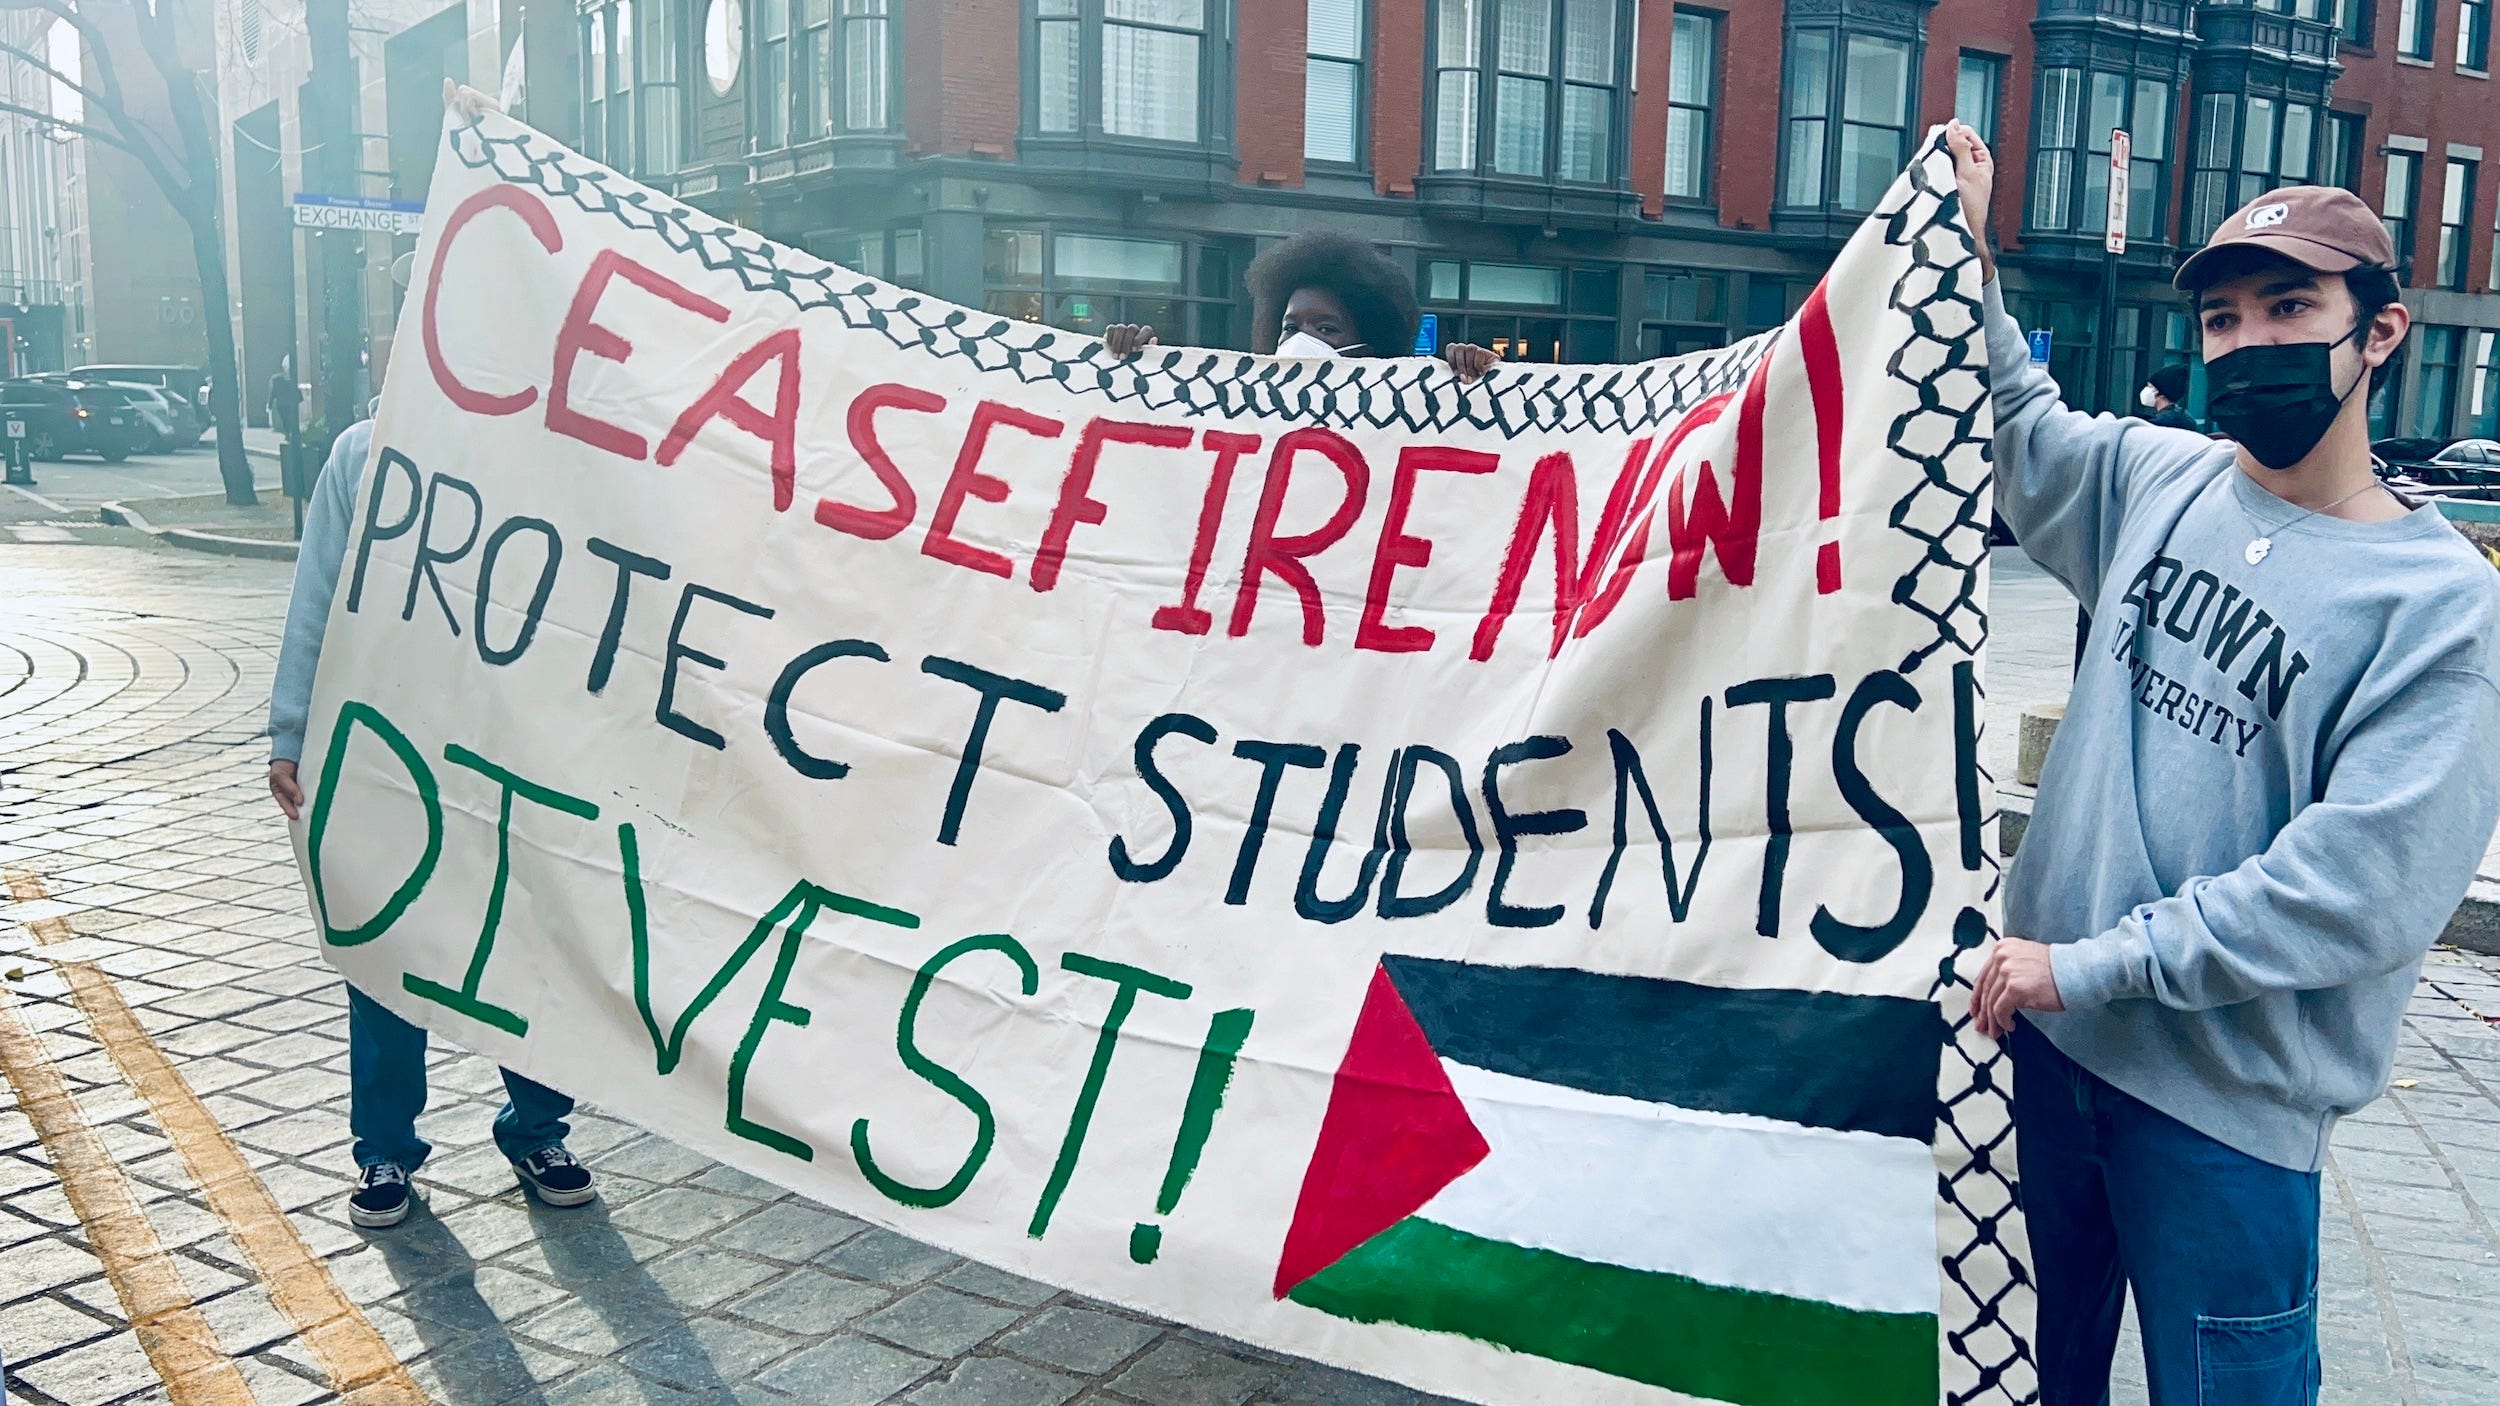 FINANCIAL DISTRICT
EXCHANGE ST
100
CEASEFIRE NOW!
PROTECT STUDENTS!
DIVEST!
BROWN
UNIVERSITY